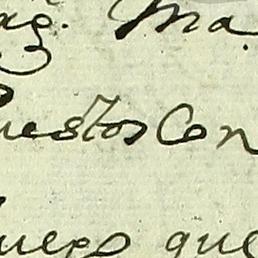 ag. Ma
uestos Con
luego que